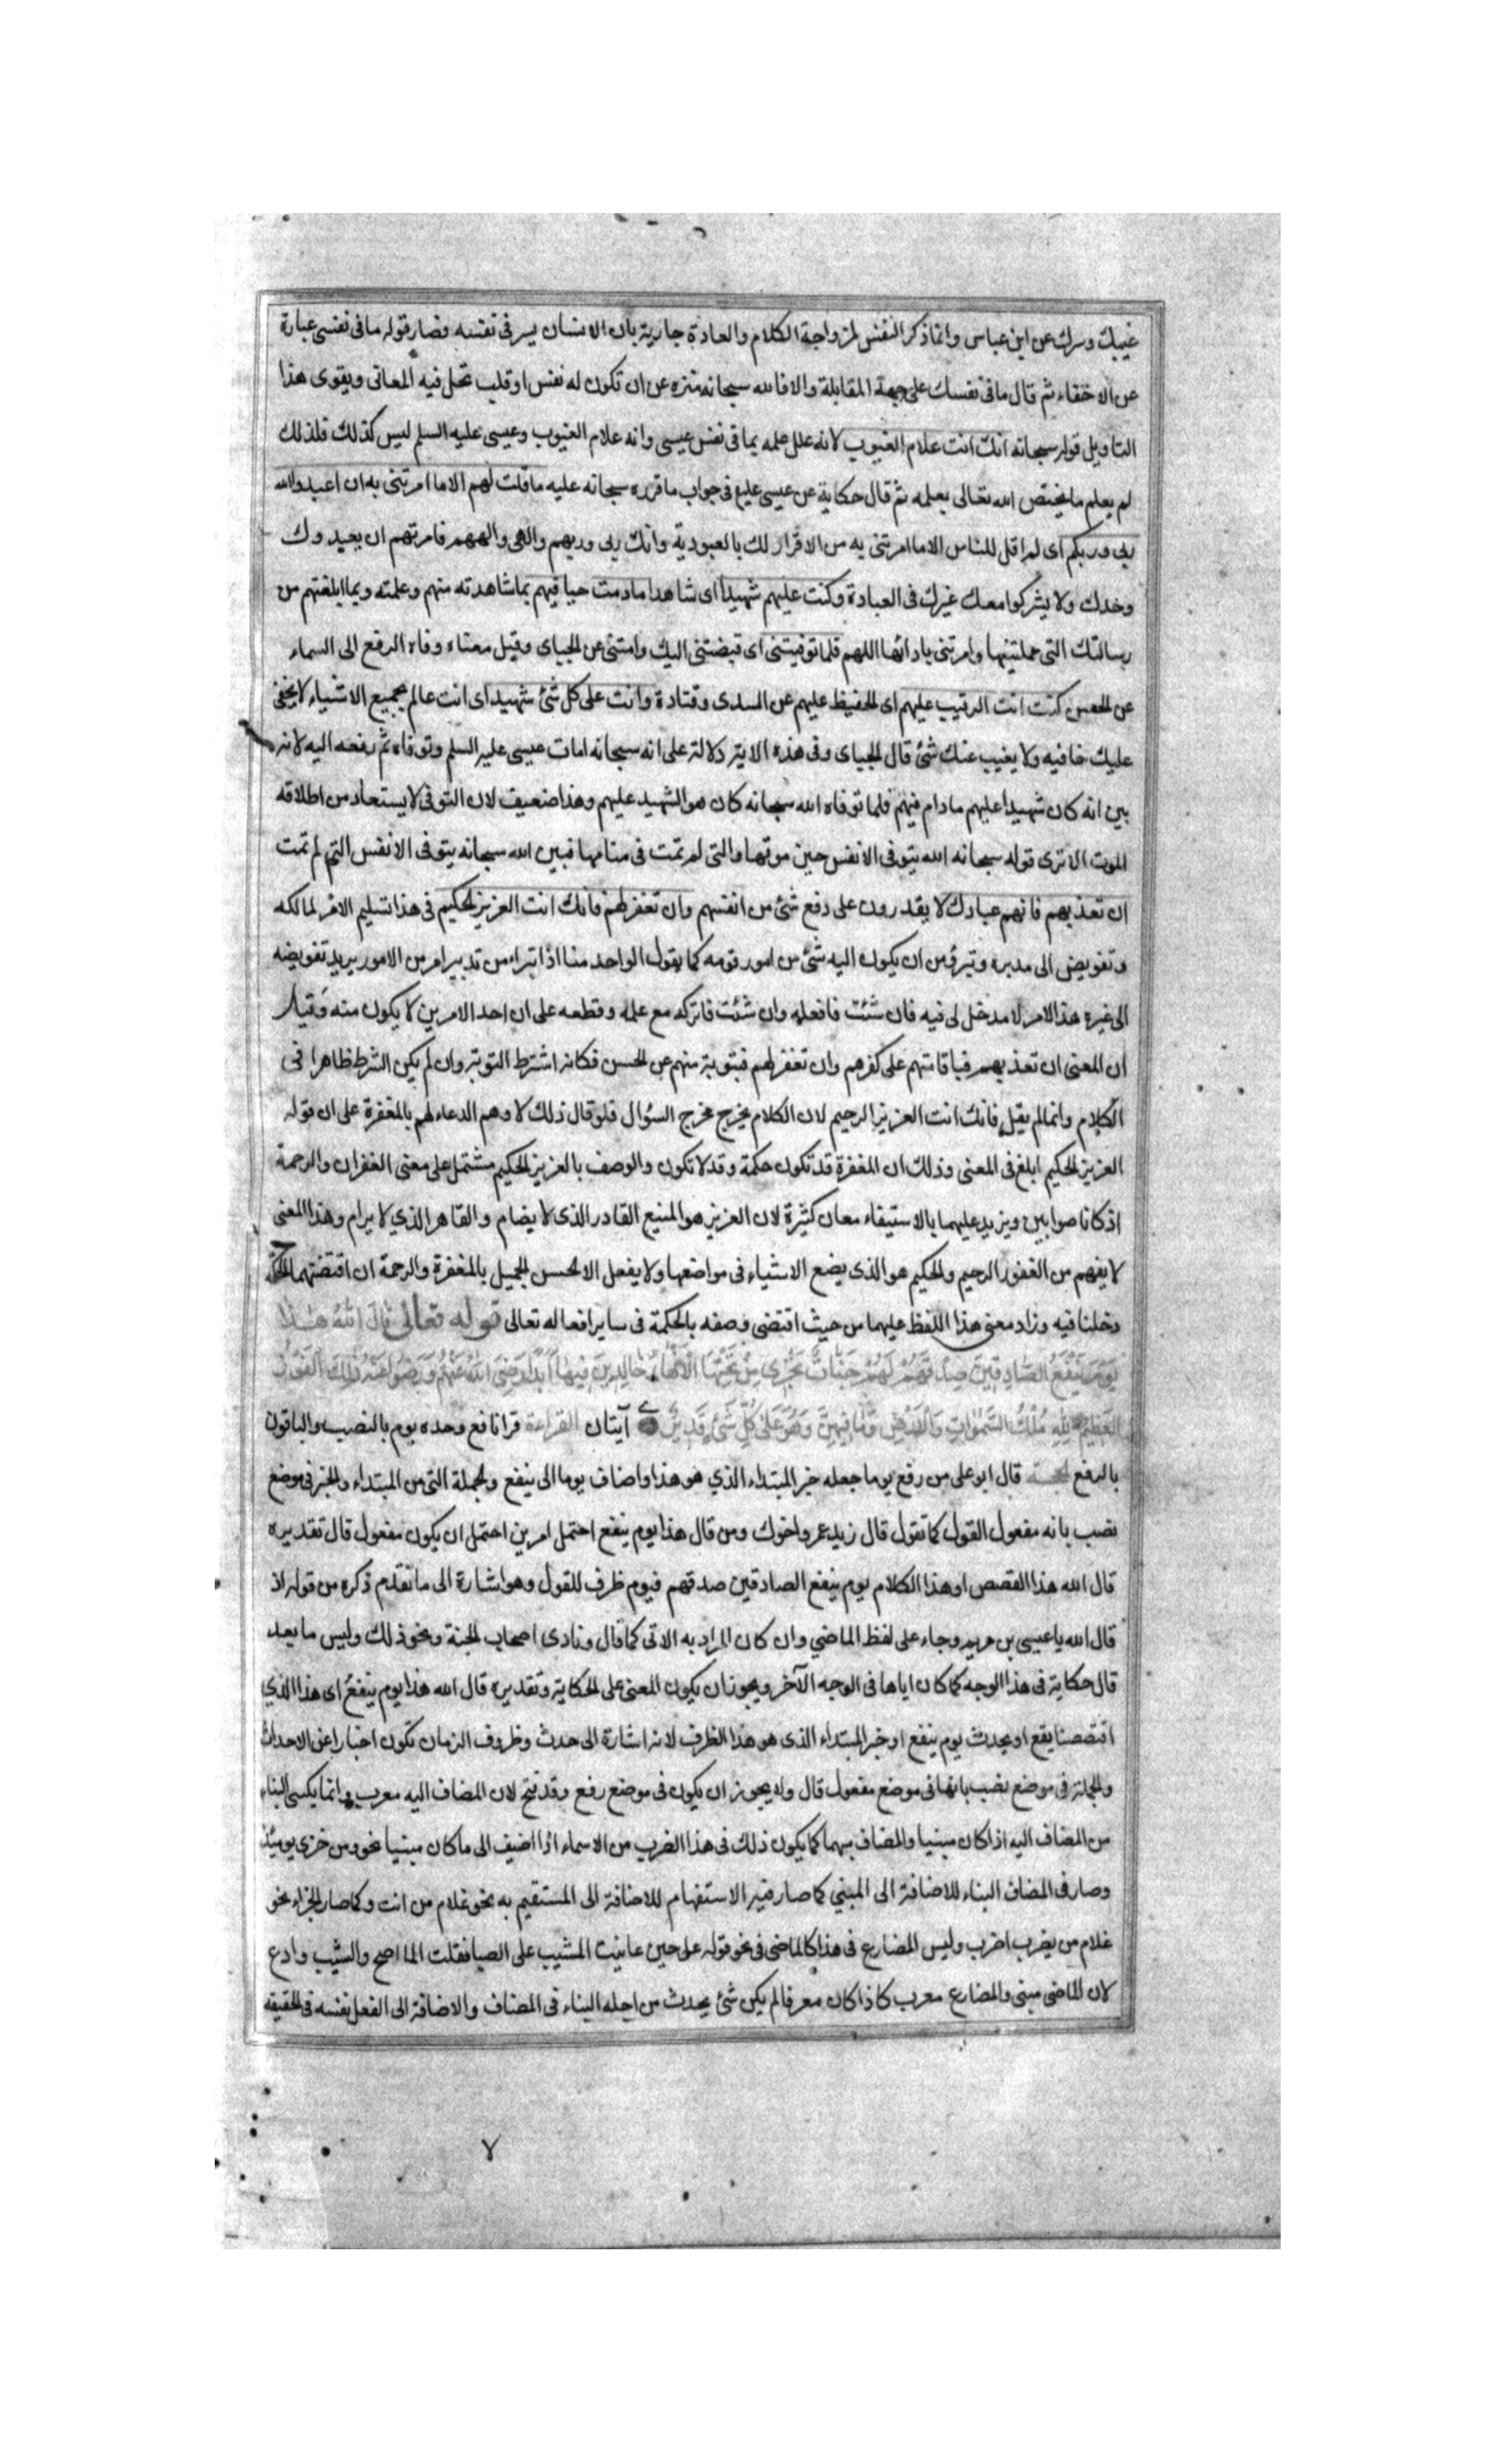 غيبك وسرك عن ابن عباس وانما ذكر النفس لمزواجة الكلام والعادة جارية بان الانسان يسر فى نفسه فصار قوله ما فى نفسى عبارة
عن الاخفاء ثم قال ما فى نفسك على جهة المقابلة والا فالله سبحانه منزه عن ان تكون له نفس او قلب تحل فيه المعانى ويقوى هذا
التاويل قوله سبحانه انك انت علام الغيوب لانه علل علمه بما فى نفس عيسى وانه علام الغيوب وعيسى عليه السلم ليس كذلك فلذلك
لم يعلم ما يختص الله تعالى بعلمه ثم قال حكاية عن عيسى عليع فى جواب ما قرره سبحانه عليه ما قلت لهم الا ما امرتنى به ان اعبدوا الله
ربى وربكم اى لم اقل للناس الا ما امرتنى به من الاقرار لك بالعبودية وانك ربى وربهم والهى والههم فامرتهم ان يعبدوك
وحدك ولا يشركوا معك غيرك فى العبادة وكنت عليهم شهيدا اى شاهدا ما دمت حيا فيهم بما شاهدته منهم وعلمته وبما ابلغتهم من
رسالتك التى حملتنيها وامرتنى بادائها اللهم فلما توفيتنى اى قبضتنى اليك وامتنى عن الجباى وقيل معناه وفاة الرفع الى السماء
عن الحسن كنت انت الرقيب عليهم اى الحفيظ عليهم عن السدى وقتادة وانت على كل شئ شهيد اى انت عالم بجميع الاشياء لا يخفى
عليك خافيه ولا يغيب عنك شئ قال الجباى وفى هذه الاية دلالة على انه سبحانه امات عيسى عليه السلم وتوفاه ثم رفعه اليه لانه
بين انه كان شهيدا عليهم ما دام فيهم فلما توفاه الله سبحانه كان هو الشهيد عليهم وهذا ضعيف لان التوفى لا يستعاد من اطلاقه
الموت الا ترى قوله سبحانه الله يتوفى الانفس حين موتها والتى لم تمت فى منامها فبين الله سبحانه يتوفى الانفس التى لم تمت
ان تعذبهم فانهم عبادك لا يقدرون على دفع شئ من انفسهم وان تغفر لهم فانك انت العزيز الحكيم فى هذا تسليم الامر لمالكه
وتفويض الى مدبره وتبرؤ من ان يكون اليه شئ من امور قومه كما يقول الواحد منا اذا تبراء من تدبير امر من الامور يريد تفويضه
الى غيره هذا الامر لا مدخل لى فيه فان شئت فافعله وان شئت فاتركه مع علمه وقطعه على ان احد الامرين لا يكون منه وقيل
ان المعنى ان تعذبهم فباقامتهم على كفرهم وان تغفر لهم فبتوبة منهم عن الحسن فكانه اشترط التوبة وان لم يكن الشرط ظاهرا فى
الكلام وانما لم يقل فانك انت العزيز الرحيم لان الكلام يخرج مخرج السؤال فلو قال ذلك لاوهم الدعاء لهم بالمغفرة على ان قوله
العزيز الحكيم ابلغ فى المعنى وذلك ان المغفرة قد تكون حكمة وقد لا تكون والوصف بالعزيز الحكيم مشتمل على معنى الغفران والرحمة
اذ كانا صوابين ويزيد عليهما بالاستيفاء معان كثيرة لان العزيز هو المنيع القادر الذى لا يضام والقاهر الذي لا يرام وهذا المعنى
لا يفهم من الغفور الرحيم والحكيم هو الذى يضع الاشياء فى مواضعها ولا يفعل الا الحسن الجميل بالمغفرة والرحمة ان اقتضتهما الحكمة
دخلنا فيه وزاد معنى هذا اللفظ عليهما من حيث اقتضى وصفه بالحكمة فى ساير افعاله تعالى قوله تعالى قال الله هذا
يوم ينفع الصادقين صدقهم لهم جنات تجرى من تحتها الانهار خالدين فيها ابدا رضى الله عنهم ورضوا عنه ذلك الفوز
العظيم لله ملك السموات والارض وما فيهن وهو على كل شئ قدير آيتان القراءة قرا نافع وحده يوم بالنصب والباقون
بالرفع الحجة قال ابو على من رفع يوما جعله خبر المبتداء الذي هو هذا واضاف يوما الى ينفع والجملة التى من المبتداء والخبر فى موضع
نصب بانه مفعول القول كما تقول قال زيد عمرو اخوك ومن قال هذا يوم ينفع احتمل امرين احتمل ان يكون مفعول قال تقديره
قال الله هذا القصص او هذا الكلام يوم ينفع الصادقين صدقهم فيوم ظرف للقول وهو اشارة الى ما تقدم ذكره من قوله اذ
قال الله يا عيسى بن مريم وجاء على لفظ الماضي وان كان المراد به الاتى كما قال ونادى اصحاب الجنة ونحو ذلك وليس ما بعد
قال حكاية فى هذا الوجه كما كان اياها فى الوجه الآخر ويجوز ان يكون المعنى على الحكاية وتقديره قال الله هذا يوم ينفع اى هذا الذي
اقتصصنا يقع او يحدث يوم ينفع او خبر المبتداء الذى هو هذا الظرف لانه اشارة الى حدث وظروف الزمان تكون اخبارا عن الاحداث
والجملة فى موضع نصب بانها فى موضع مفعول قال ولا يجوز ان يكون فى موضع رفع وقد فتح لان المضاف اليه معرب وانما يكسى البناء
من المضاف اليه اذا كان مبنيا والمضاف مبهما كما يكون ذلك فى هذا الضرب من الاسماء اذا اضيف الى ما كان مبنيا نحو ومن خزى يومئذ
وصار فى المضاف البناء للاضافة الى المبني كما صار فيه الاستفهام للاضافة الى المستقيم به نحو غلام من انت وكما صار الجزاء نحو
غلام من يضرب اضرب وليس المضارع فى هذا كالماضى فى نحو قوله على حين عاينت المشيب على الصبا فقلت الما اصح والشيب وادع
لان الماضى مبنى والمضارع معرب كاذا كان معرفا لم يكن شئ يحدث من اجله البناء فى المضاف والاضافة الى الفعل نفسه فى الحقيقة